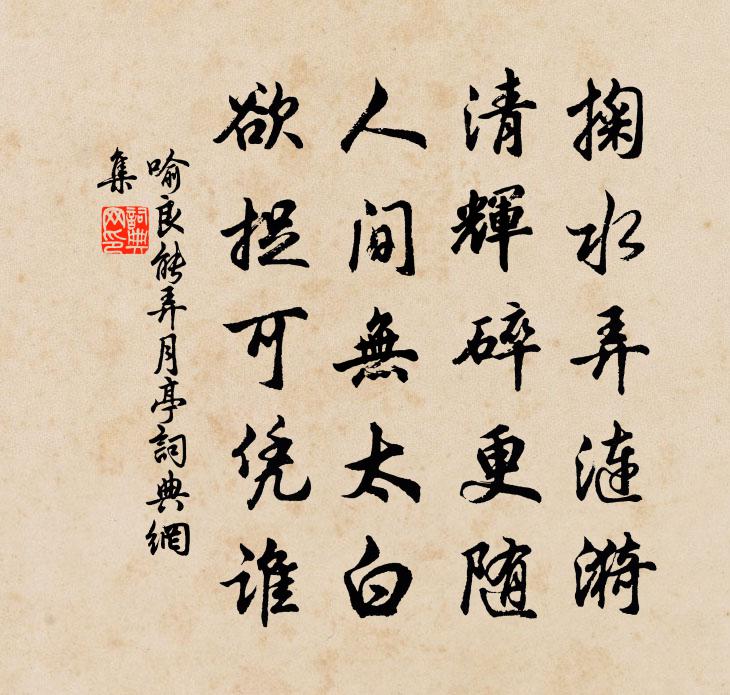 掬水弄漣漪
清輝碎更随
人间無太白
欲捉可凭誰
喻良能弄月亭詞典網
集
詞典网印